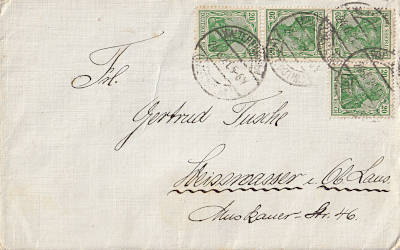 20 20 20
20 20
Frl.
Gertrud Tusche
Weisswasser i. Ob Laus.
Muskauer-Str. 46.